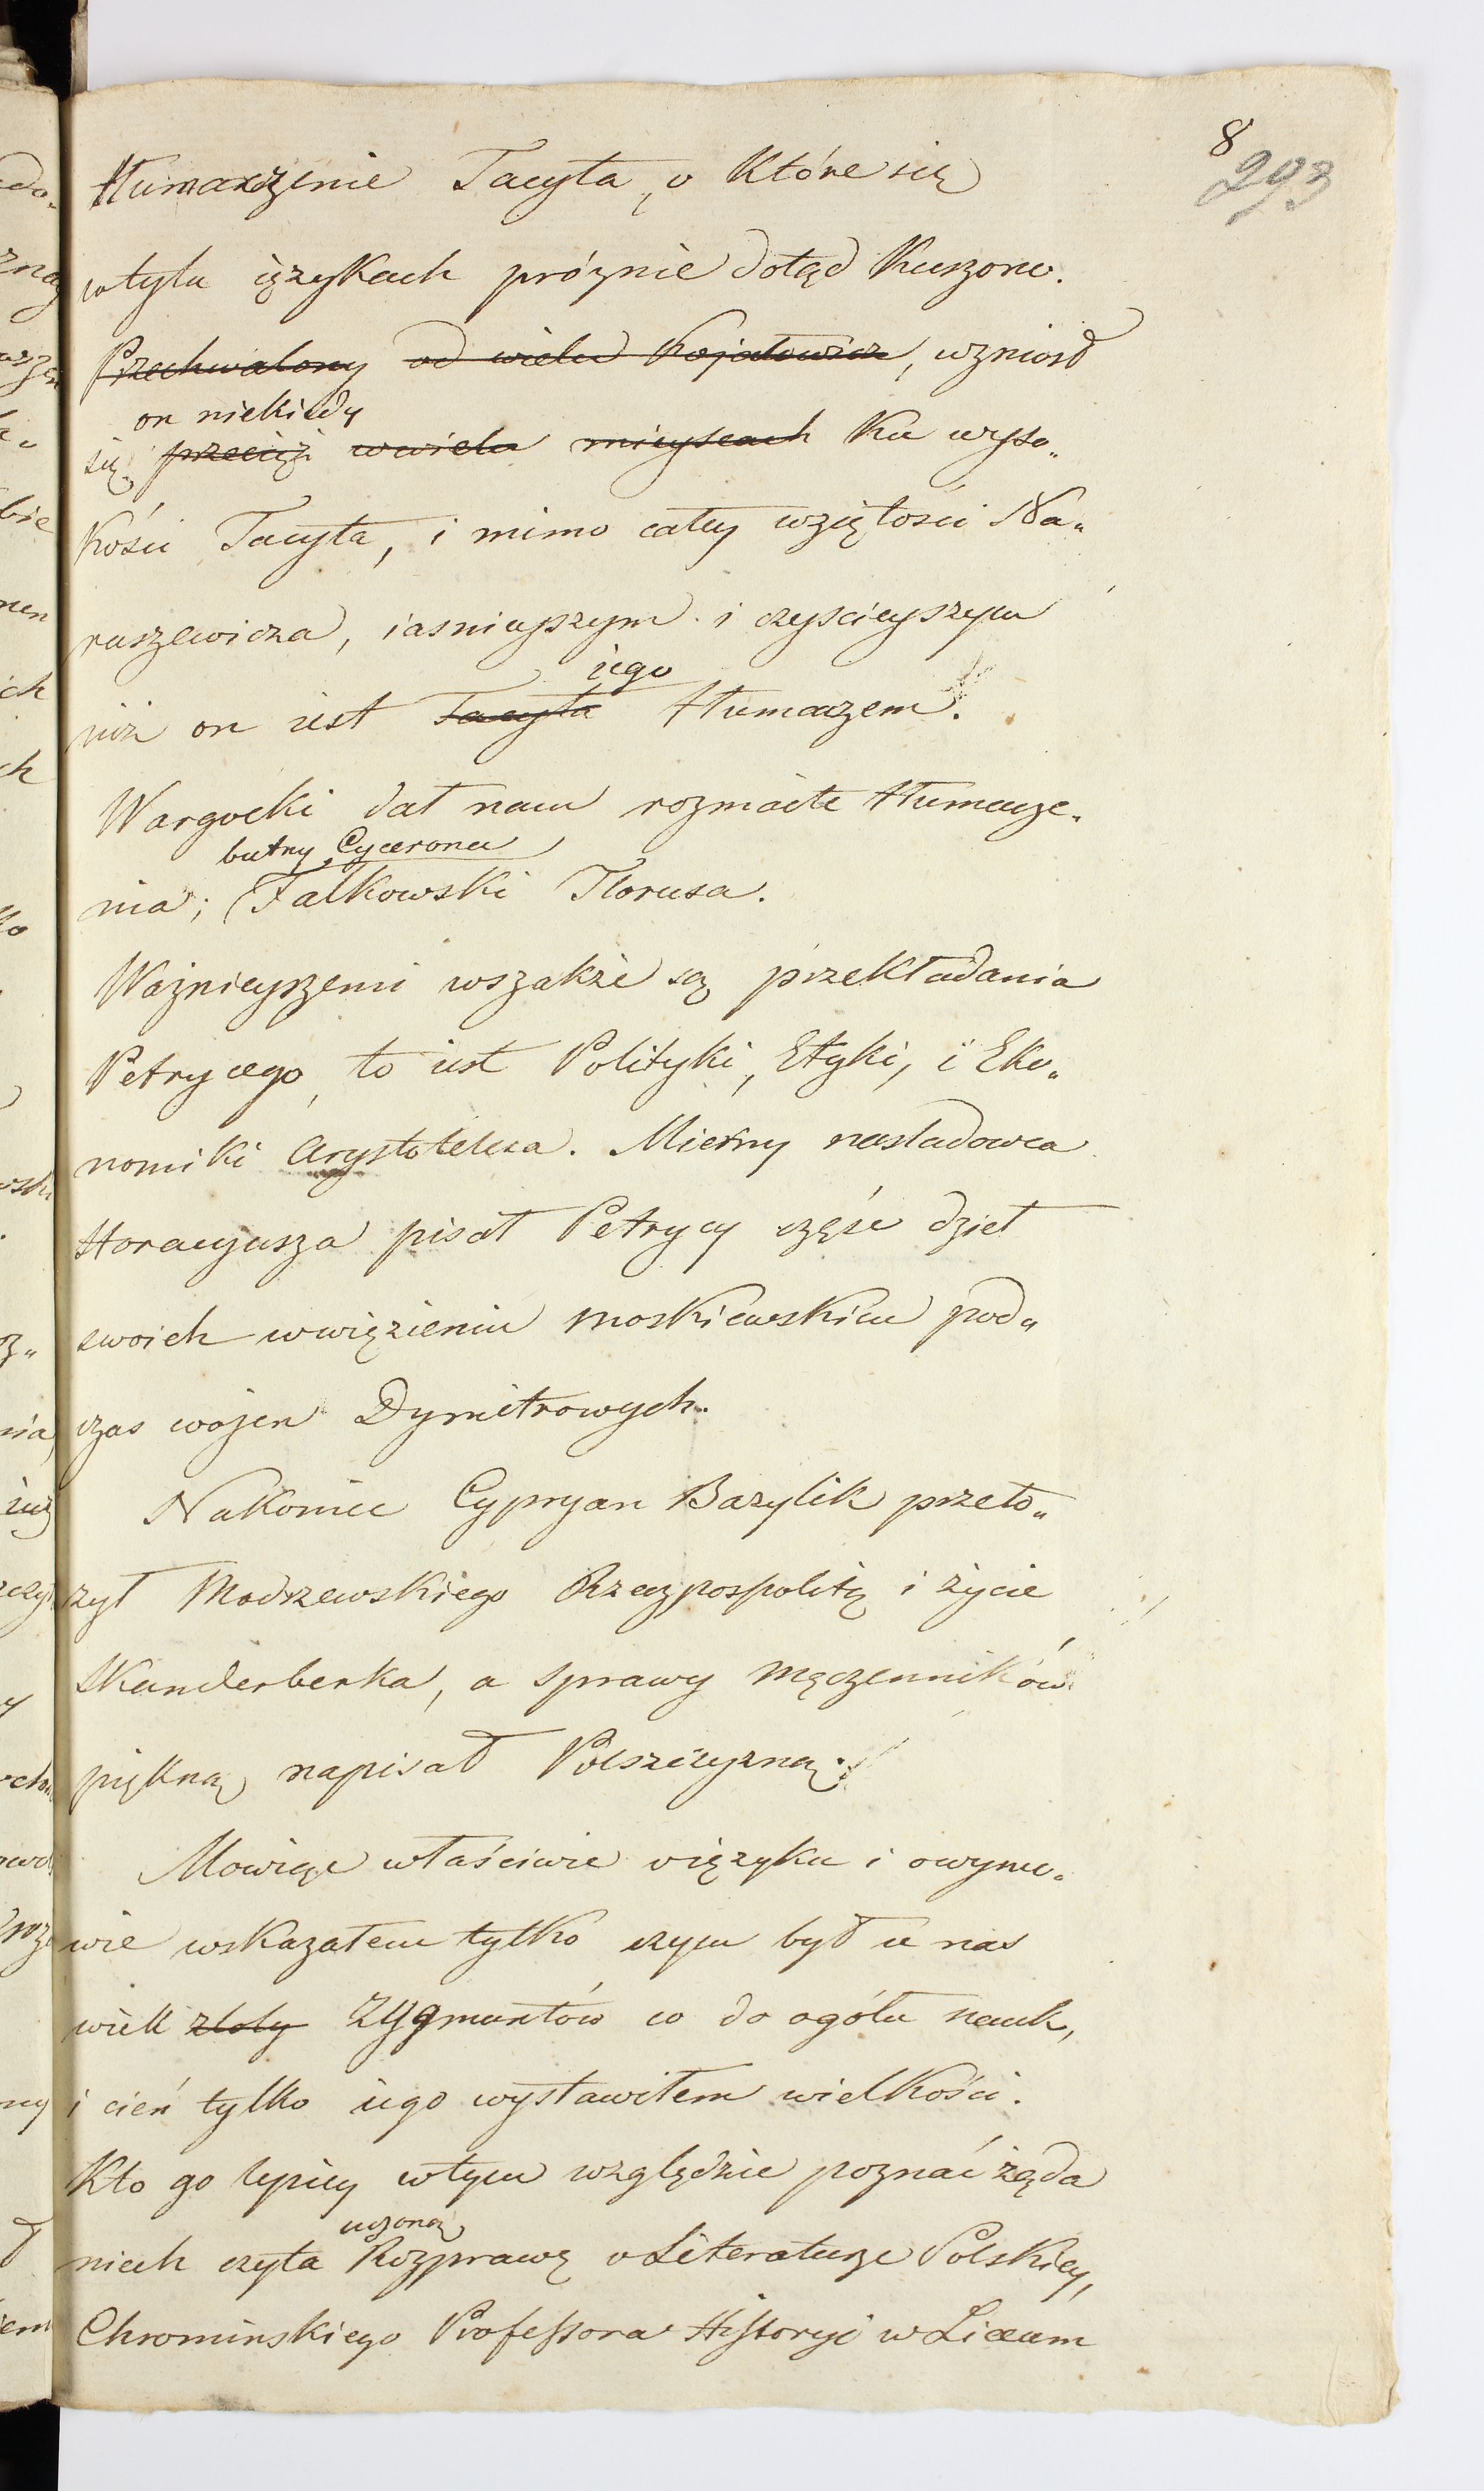 8
293
tłumaczenie Tacyta, o które się
w tylu ięzykach próżnie dotąd kuszono.
Przechwalony od wielu Kojałowicz, wzniosł
on niekiedy
się przecięż w wielu mieyscach ku wyso„
kości Tacyta, i mimo całey wziętości Na„
ruszewicza, iasnieyszym i czyscieyszym
iego
niż on iest Tacyta tłumaczem.
Wargocki dał nam rozmaite tłumacze„
Cycerona
nia; Falkowski Florusa.
Ważnieyszemi wszakże są przekładania
Petrycego, to iest Polityki, Etyki, i Eko„
nomiki Arystotelesa. Mierny nasladowca
Horacyusza pisał Petrycy część dzieł
swoich w więzieniu moskiewskim pod„
czas wojen Dymitrowych.
Nakoniec Cypryan Bazylik przeło„
żył Modrzewskiego Rzeczpospolitę i życie
Skanderberka, a sprawy męczenników
piękną napisał Polszczyzną.
Mowiąc właściwie o ięzyku i o wymo„
wie wskazałem tylko czym był u nas
wiek złoty Zygmuntów co do ogółu nauk,
i cień tylko iego wystawiłem wielkości.
Kto go lepiey w tym względzie poznać żąda
uczoną
niech czyta Rozprawę o Literaturze Polskiey,
Chrominskiego Professora Historyi w Liceum